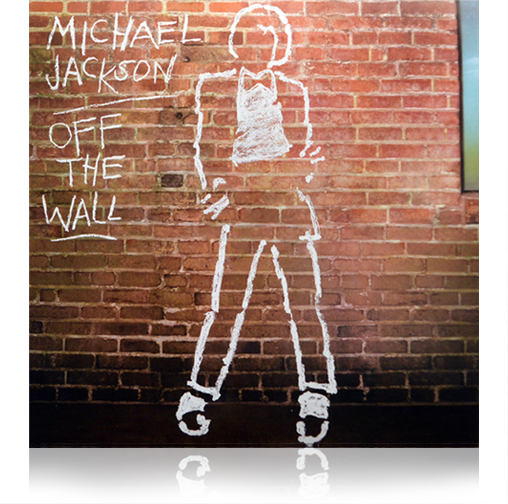 MICHAEL
JACKSON
OFF
THE
WALL